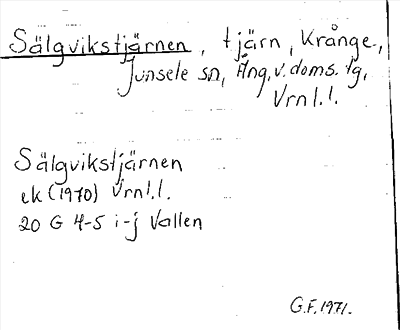 Sälgvikstjärnen, tjärn, Krånge,
Junsele sn, Ång. v. doms. tg,
Vrnl.l.
Sälgvikstjärnen
ek (1970) Vrnl.l.
20 G 4-5 i-j Vallen
G.F. 1971.